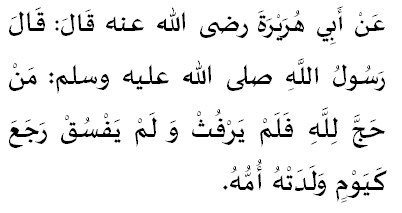 عَنْ أَبِي هُرَيْرَةَ رضى الله عنه قَالَ: قَالَ
رَسُولُ اللَّهِ صلى الله عليه وسلم: مَنْ
حَجَّ لِلَّهِ فَلَمْ يَرْفُثْ وَ لَمْ يَفْسُقْ رَجَعَ
كَيَوْمٍ وَلَدَتْهُ أُمُّهُ.